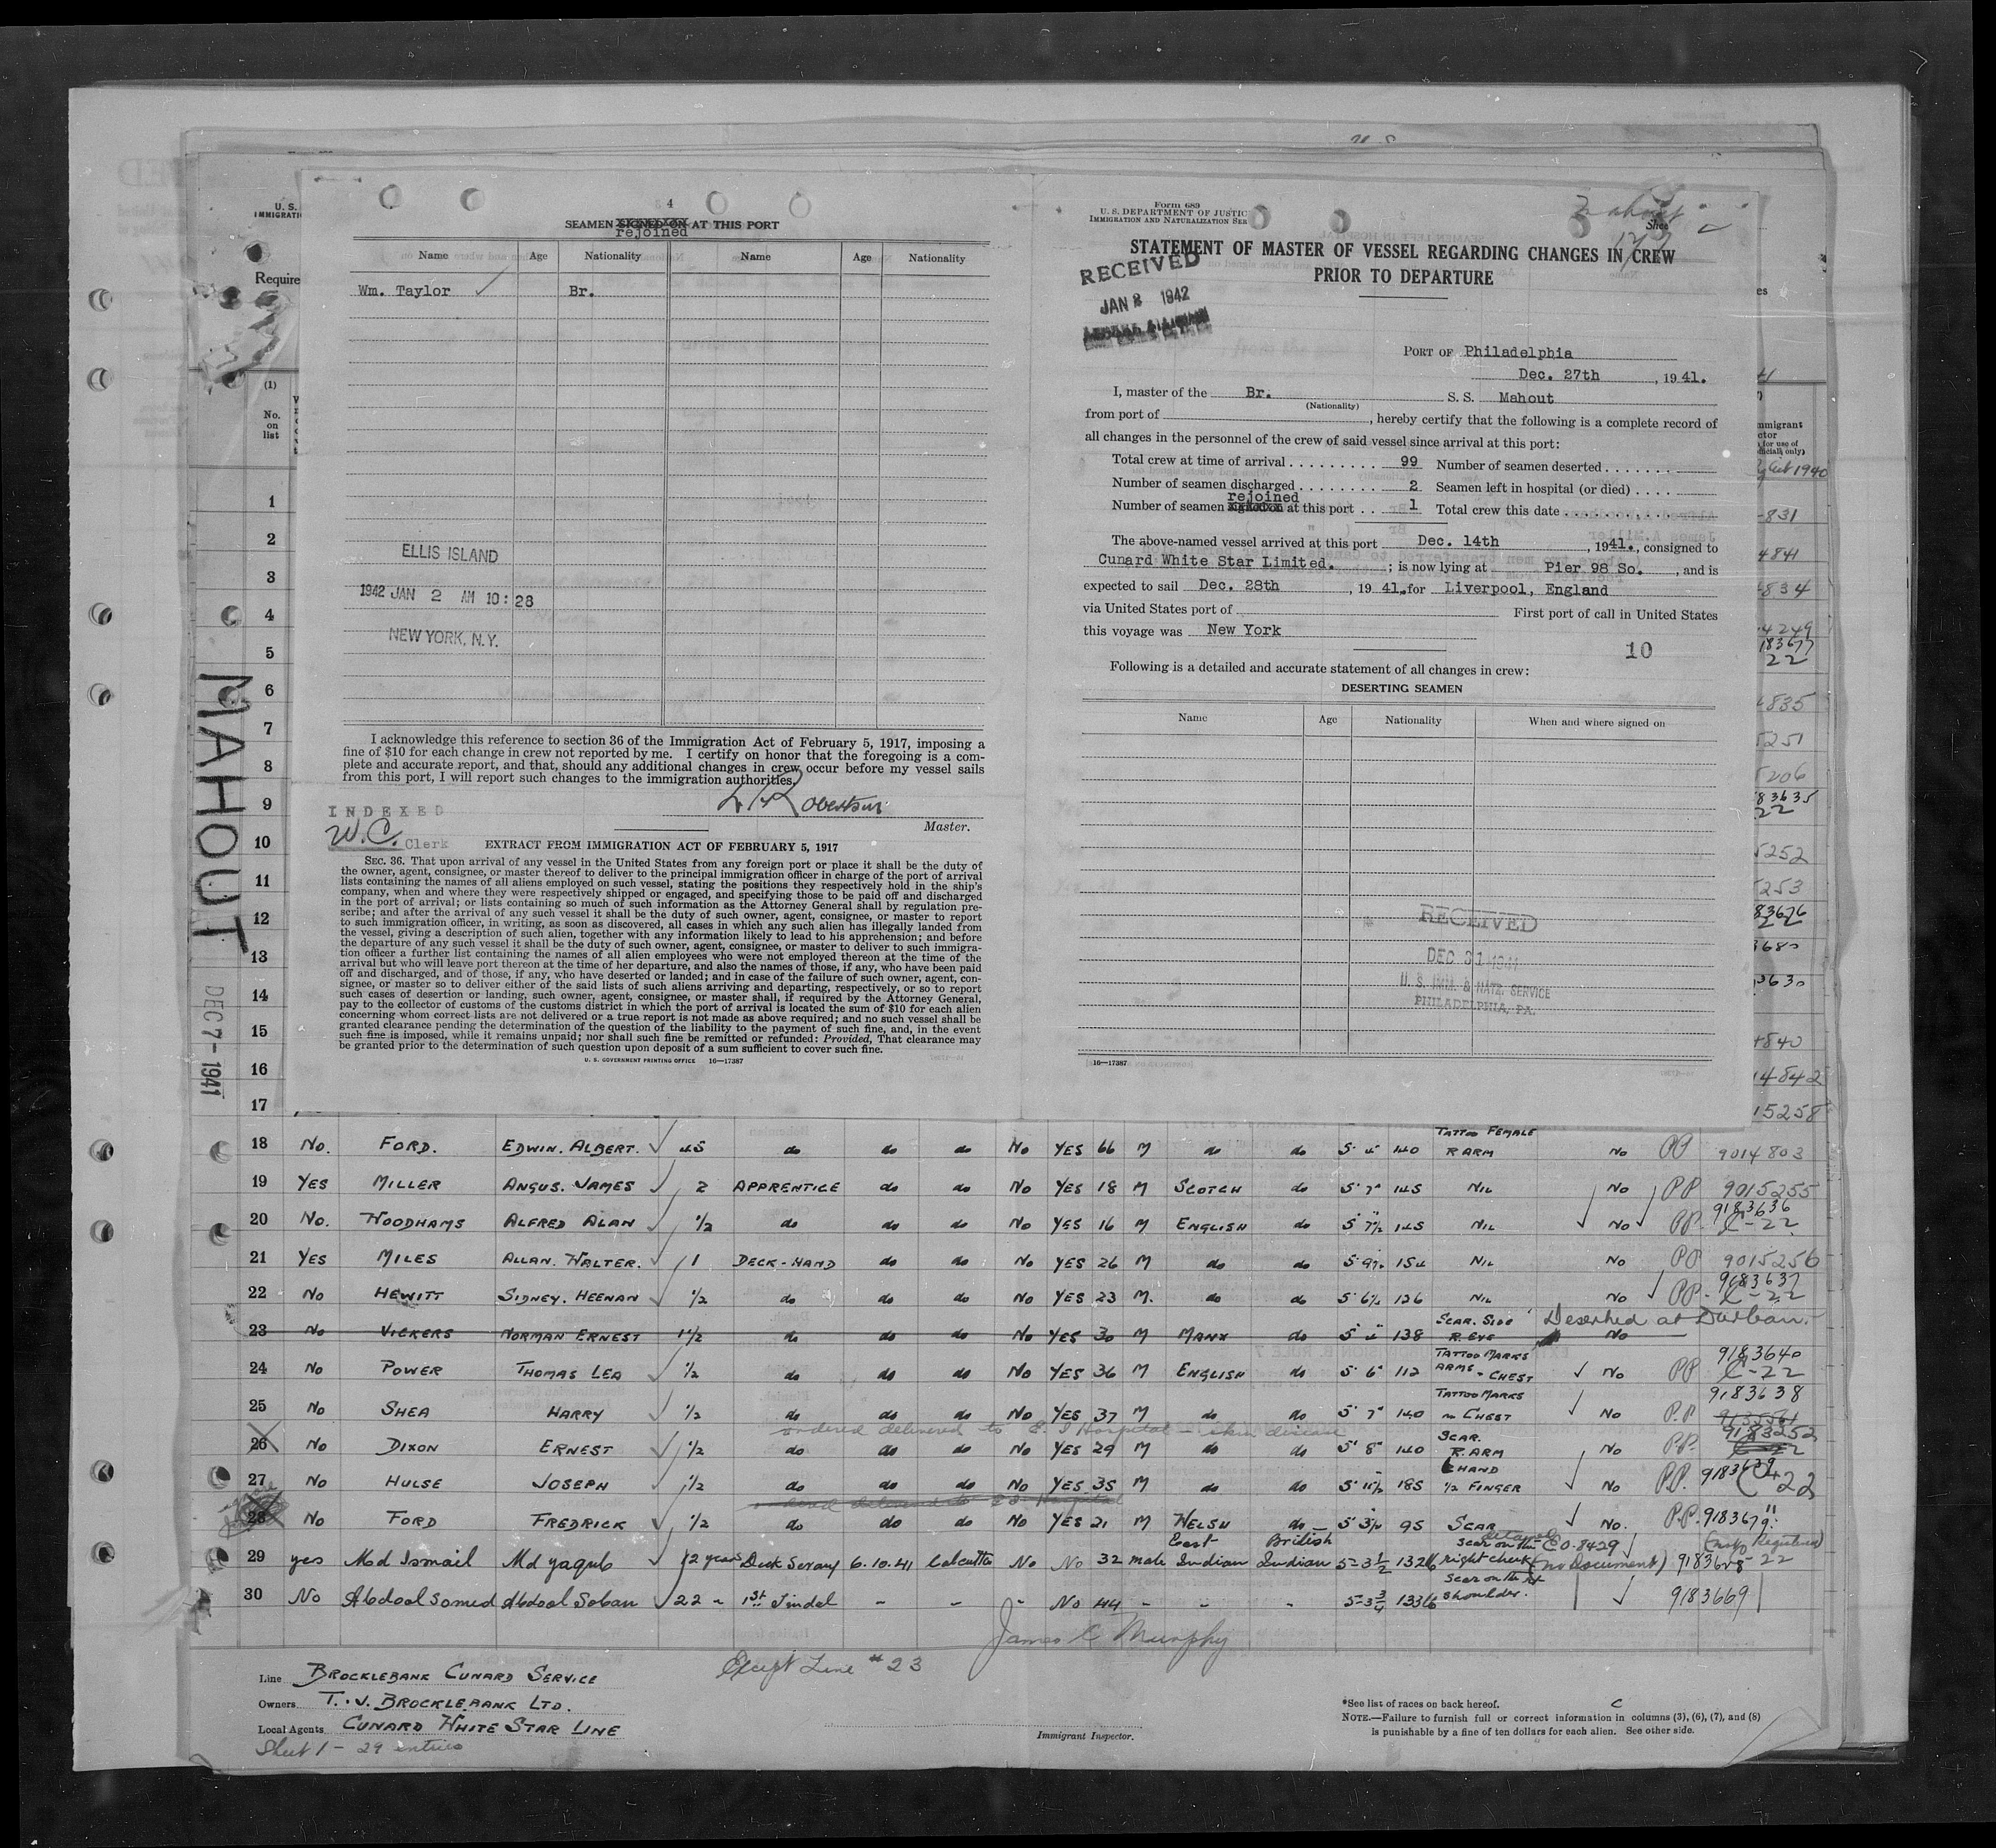 U. S.
IMMIGRATI
Require
4
SEAMEN SIGNED ON AT THIS PORT
rejoined
Name Age Nationality Name Age Nationality
Wm. Taylor ✓ Br.
ELLIS ISLAND
1942 JAN 2 AM 10:28
NEW YORK, N.Y.
I acknowledge this reference to section 36 of the Immigration Act of February 5, 1917, imposing a
fine of $10 for each change in crew not reported by me. I certify on honor that the foregoing is a com-
plete and accurate report, and that, should any additional changes in crew occur before my vessel sails
from this port, I will report such changes to the immigration authorities.
Robertson
Master.
INDEXED
W.C. Clerk
EXTRACT FROM IMMIGRATION ACT OF FEBRUARY 5, 1917
SEC. 36. That upon arrival of any vessel in the United States from any foreign port or place it shall be the duty of
the owner, agent, consignee, or master thereof to deliver to the principal immigration officer in charge of the port of arrival
lists containing the names of all aliens employed on such vessel, stating the positions they respectively hold in the ship's
company, when and where they were respectively shipped or engaged, and specifying those to be paid off and discharged
in the port of arrival; or lists containing so much of such information as the Attorney General shall by regulation pre-
scribe; and after the arrival of any such vessel it shall be the duty of such owner, agent, consignee, or master to report
to such immigration officer, in writing, as soon as discovered, all cases in which any such alien has illegally landed from
the vessel, giving a description of such alien, together with any information likely to lead to his apprehension; and before
the departure of any such vessel it shall be the duty of such owner, agent, consignee, or master to deliver to such immigra-
tion officer a further list containing the names of all alien employees who were not employed thereon at the time of the
arrival but who will leave port thereon at the time of her departure, and also the names of those, if any, who have been paid
off and discharged, and of those, if any, who have deserted or landed; and in case of the failure of such owner, agent, con-
signee, or master so to deliver either of the said lists of such aliens arriving and departing, respectively, or so to report
such cases of desertion or landing, such owner, agent, consignee, or master shall, if required by the Attorney General,
pay to the collector of customs of the customs district in which the port of arrival is located the sum of $10 for each alien
concerning whom correct lists are not delivered or a true report is not made as above required; and no such vessel shall be
granted clearance pending the determination of the question of the liability to the payment of such fine, and, in the event
such fine is imposed, while it remains unpaid; nor shall such fine be remitted or refunded: Provided, That clearance may
be granted prior to the determination of such question upon deposit of a sum sufficient to cover such fine.
U. S. GOVERNMENT PRINTING OFFICE 16—17387
Form 689
U. S. DEPARTMENT OF JUSTIC
IMMIGRATION AND NATURALIZATION SER
Mahout
Shee
STATEMENT OF MASTER OF VESSEL REGARDING CHANGES IN CREW
PRIOR TO DEPARTURE
RECEIVED
JAN 2 1942
PORT OF Philadelphia
Dec. 27th, 1941.
I, master of the Br. S. S. Mahout
(Nationality)
from port of , hereby certify that the following is a complete record of
all changes in the personnel of the crew of said vessel since arrival at this port:
Total crew at time of arrival . . . . . . . . . 99 Number of seamen deserted . . . . . . .
Number of seamen discharged . . . . . . . . 2 Seamen left in hospital (or died) . . . .
rejoined
Number of seamen signed on at this port . . 1 Total crew this date . . . . . . . . . . . .
The above-named vessel arrived at this port Dec. 14th, 1941., consigned to
Cunard White Star Limited. ; is now lying at Pier 98 So. , and is
expected to sail Dec. 28th , 19 41.for Liverpool, England
via United States port of First port of call in United States
this voyage was New York
10
Following is a detailed and accurate statement of all changes in crew:
DESERTING SEAMEN
Name Age Nationality When and where signed on
RECEIVED
DEC 31 1941
U. S. IMM. & NATZ. SERVICE
PHILADELPHIA, PA.
16—17387
MAHOUT
DEC 7-1941
(1)
No.
on
list
1
2
3
4
5
6
7
8
9
10
11
12
13
14
15
16
17
18 No. FORD. EDWIN. ALBERT. ✓ 45 do do do No YES 66 M do do 5' 4" 140 TATTOO FEMALE R ARM No PP 9014803
19 YES MILLER ANGUS. JAMES ✓ 2 APPRENTICE do do No YES 18 M SCOTCH do 5' 7" 145 NIL No PP 9015255
20 No. WOODHAMS ALFRED ALAN ✓ 1/2 do do do No YES 16 M ENGLISH do 5' 7½ 145 NIL No PP. 9183636 C-22
21 YES MILES ALLAN. WALTER. ✓ 1 DECK-HAND do do No YES 26 M do do 5' 9½ 154 NIL No PP 9015256
22 No HEWITT SIDNEY. HEENAN ✓ 1/2 do do do No YES 23 M. do do 5' 6½ 126 NIL No PP. 9183637 C-22
23 No VICKERS NORMAN ERNEST 1½ do do do No YES 30 M MANX do 5' 4" 138 SCAR. SIDE R. EYE No Deserted at Durban.
24 No POWER THOMAS LEO ✓ 1/2 do do do No YES 36 M ENGLISH do 5' 6" 112 TATTOO MARKS ARMS - CHEST ✓ No PP 9183640 C-22
25 No SHEA HARRY ✓ 1/2 do do do No YES 37 M do do 5' 7" 140 TATTOO MARKS on CHEST ✓ No P.P 9183638
ordered delivered to E. I Hospital - skin disease
26 No DIXON ERNEST ✓ 1/2 do do do No YES 29 M do do 5' 8" 140 SCAR. R. ARM No P.P. 9183252 C-22
27 No HULSE JOSEPH ✓ 1/2 do do do No YES 35 M do do 5' 11½ 185 L HAND ½ FINGER ✓ No P.P. 9183639 C-22
ordered delivered to E I Hospital
28 No FORD FREDRICK ✓ 1/2 do do do No YES 21 M WELSH do 5' 3½ 95 SCAR ✓ No. P.P. 9183679
29 yes Md Ismail Md yaqub ✓ 12 years Deck Serang 6.10.41 Calcutta No No 32 male East Indian British Indian 5-3½ 132lb scar on the right cheek CO-8429 (no Document) 22
30 No Abdool Somed Abdool Soban ✓ 22 " 1st Tindal - - - No 44 - - - 5-3¾ 133lb scar on the rt shoulder. ✓ 9183669
James C Murphy
Except Line #23
Line BROCKLEBANK CUNARD SERVICE
Owners T. & J. BROCKLEBANK LTD.
Local Agents CUNARD WHITE STAR LINE
Sheet 1 - 29 entries
Immigrant Inspector.
*See list of races on back hereof. C
NOTE.—Failure to furnish full or correct information in columns (3), (6), (7), and (8)
is punishable by a fine of ten dollars for each alien. See other side.